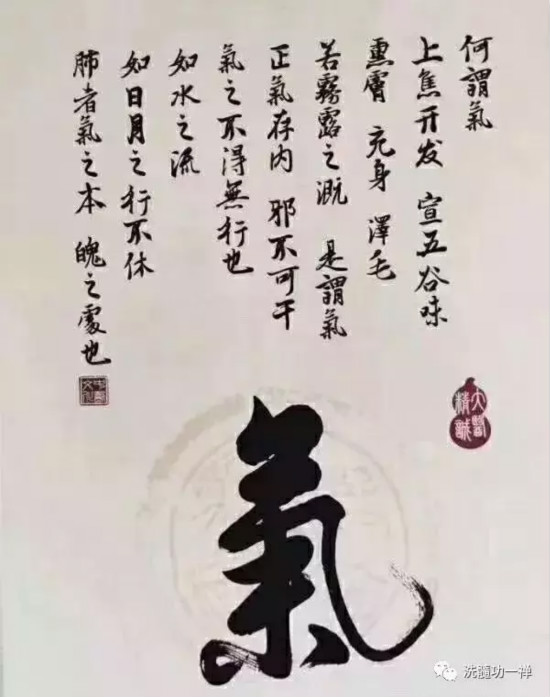 何謂氣
上焦开发 宣五谷味
熏膚 充身 澤毛
若霧露之溉 是謂氣
正氣存内 邪不可干
氣之不得無行也
如水之流
如日月之行不休
肺者氣之本 魄之處也
大醫精誠
氣
洗髓功一禅